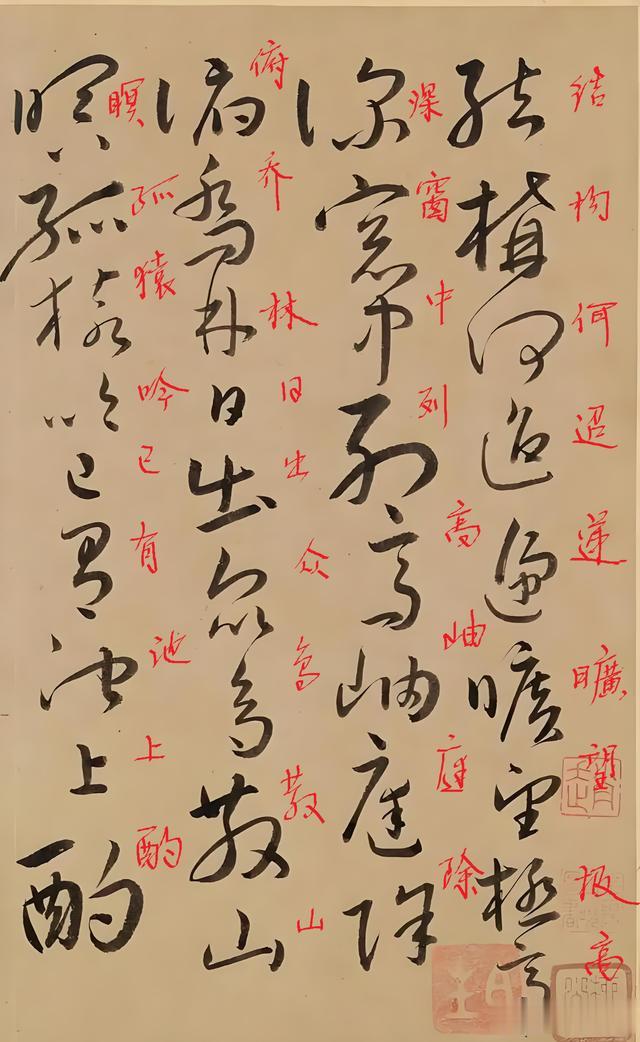 结构何迢递曠望极高
結構何迢遞曠望極高
深窗中列高岫庭除
深窓中列高岫庭除
俯乔林日出众鸟散山
俯喬林日出眾鳥散山
瞑孤猿吟已有池上酌
瞑孤猿吟已有池上酌